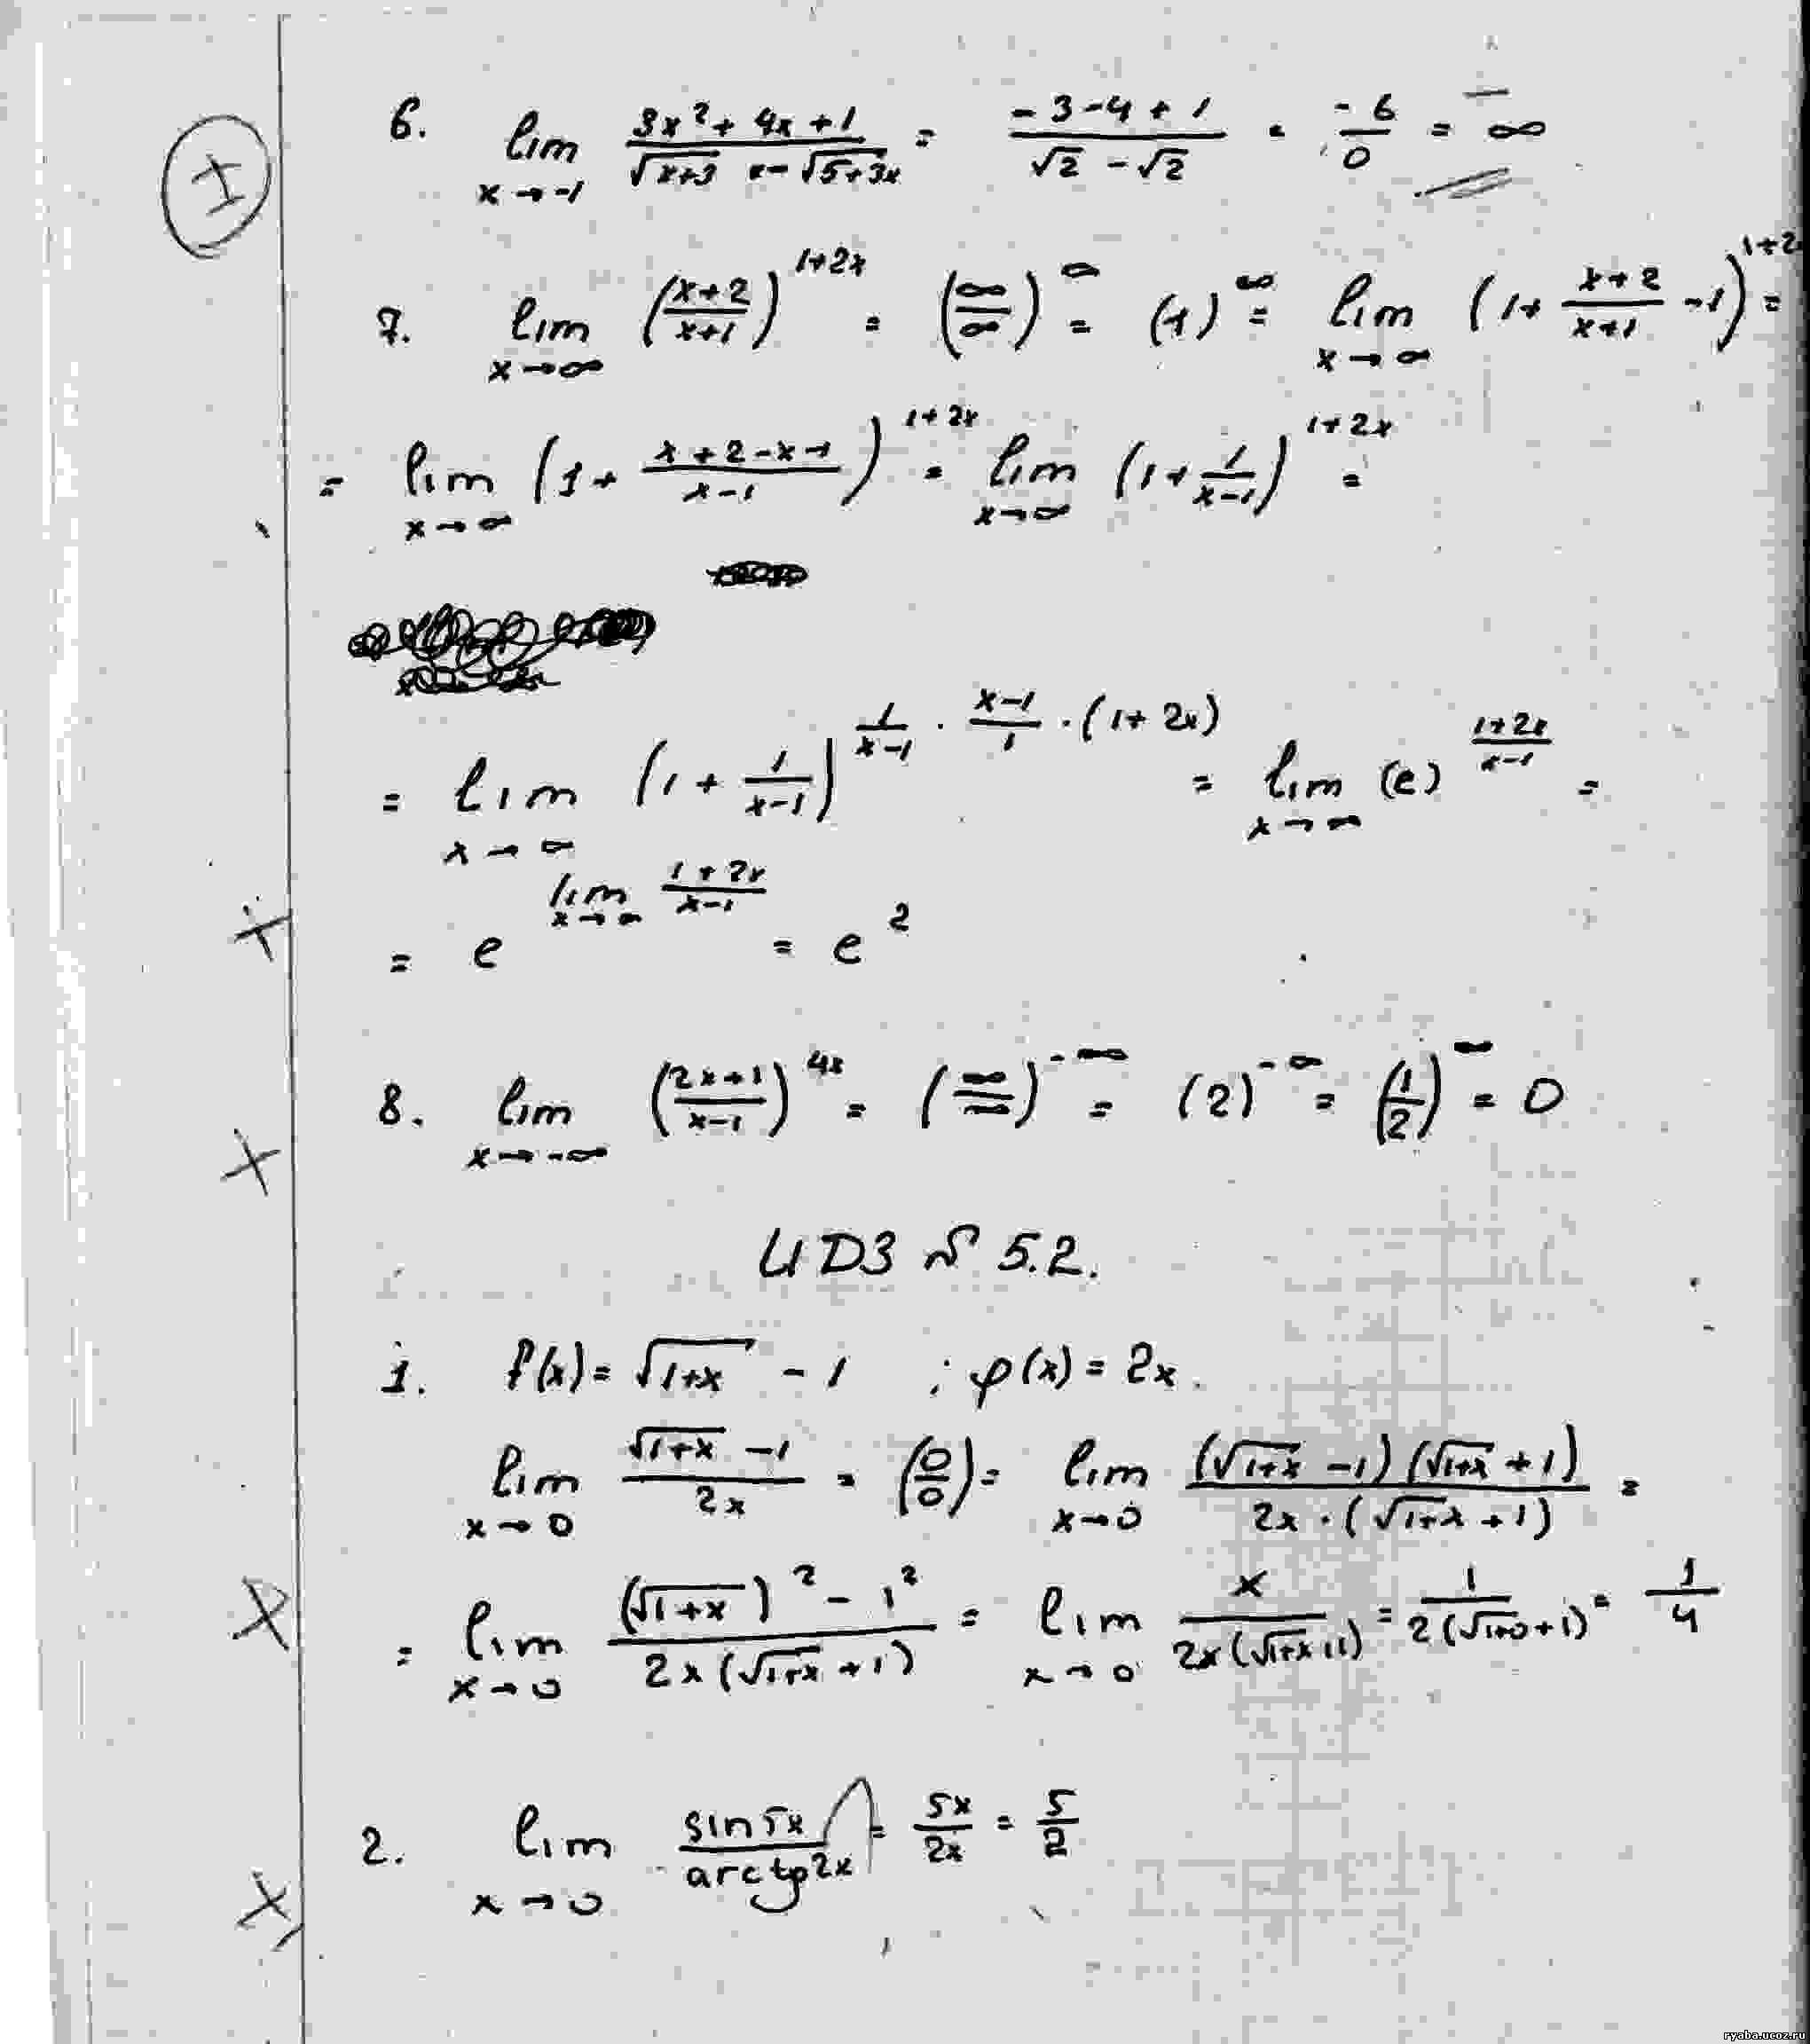 I
6. lim x→-1 (3x²+4x+1)/(√(x+3) - √(5+3x)) = (-3-4+1)/(√2-√2) = -6/0 = ∞
7. lim x→∞ ((x+2)/(x+1))^(1+2x) = (∞/∞)^∞ = (1)^∞ = lim x→∞ (1+ (x+2)/(x+1) -1)^(1+2x) =
= lim x→∞ (1+ (x+2-x-1)/(x-1))^(1+2x) = lim x→∞ (1+ 1/(x-1))^(1+2x) =
= lim x→∞ (1+ 1/(x-1))^(1/(x-1) · (x-1)/1 · (1+2x)) = lim x→∞ (e)^((1+2x)/(x-1)) =
= e^(lim x→∞ (1+2x)/(x-1)) = e²
8. lim x→-∞ ((2x+1)/(x-1))^(4x) = (∞/∞)^(-∞) = (2)^(-∞) = (1/2)^∞ = 0
ИDЗ № 5.2.
1. f(x)= √(1+x) - 1 ; φ(x) = 2x.
lim x→0 (√(1+x) -1)/(2x) = (0/0) = lim x→0 ((√(1+x) -1)(√(1+x) +1))/(2x·(√(1+x) +1)) =
= lim x→0 ((√(1+x))² - 1²)/(2x(√(1+x) +1)) = lim x→0 x/(2x(√(1+x)+1)) = 1/(2(√(1+0)+1)) = 1/4
2. lim x→0 sin5x/arctg2x = 5x/2x = 5/2
ryaba.ucoz.ru